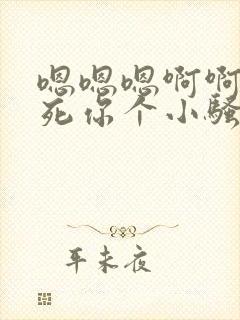 嗯嗯嗯啊啊
死你个小骚
耳未夜